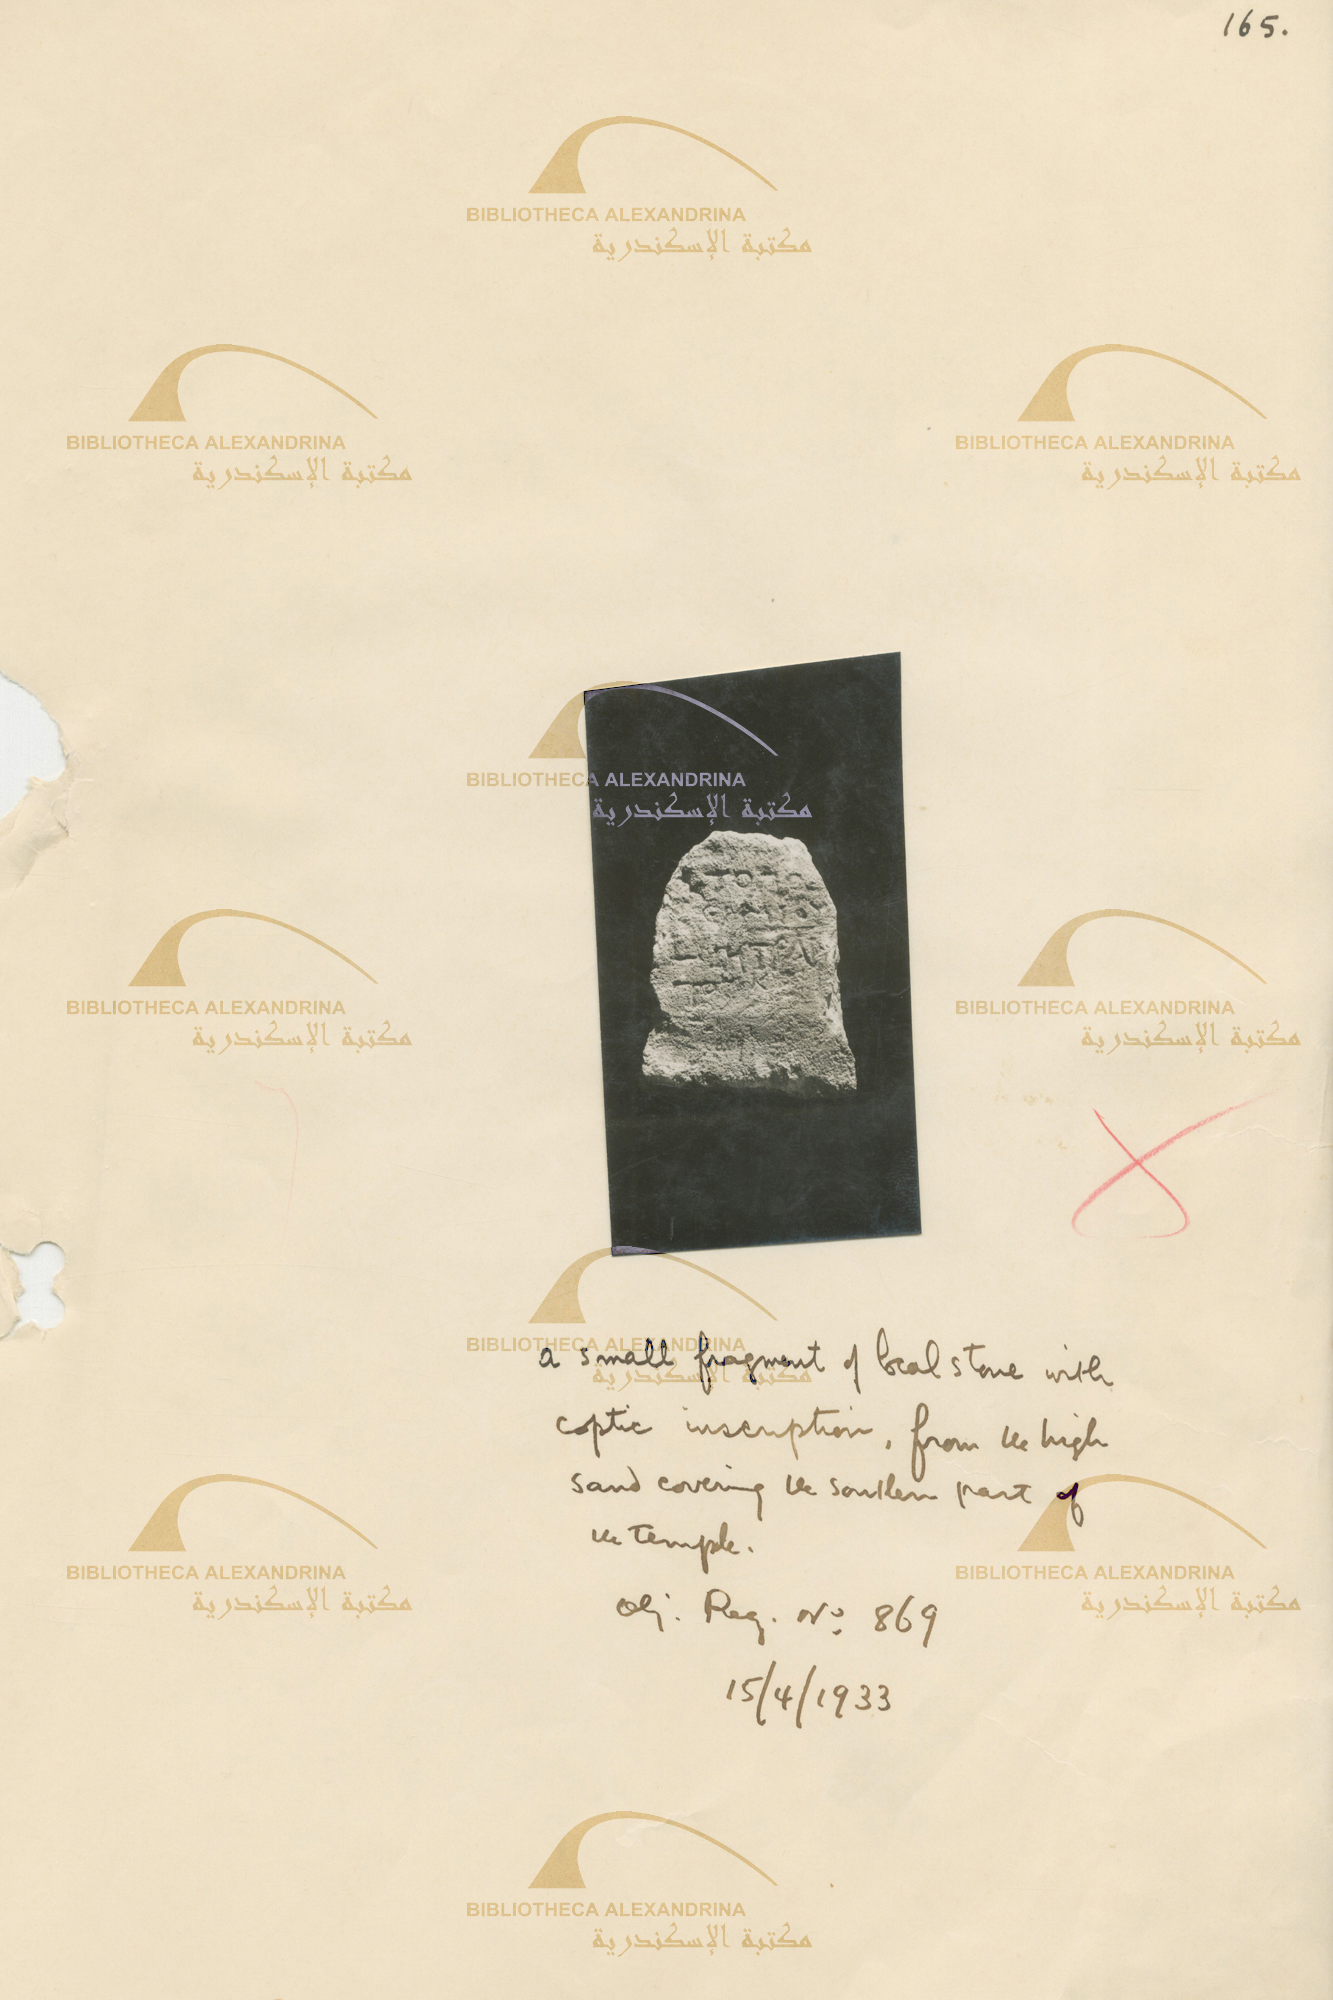 165.
BIBLIOTHECA ALEXANDRINA
مكتبة الإسكندرية
BIBLIOTHECA ALEXANDRINA
مكتبة الإسكندرية
BIBLIOTHECA ALEXANDRINA
مكتبة الإسكندرية
BIBLIOTHECA ALEXANDRINA
مكتبة الإسكندرية
BIBLIOTHECA ALEXANDRINA
مكتبة الإسكندرية
BIBLIOTHECA ALEXANDRINA
مكتبة الإسكندرية
BIBLIOTHECA ALEXANDRINA
مكتبة الإسكندرية
a small fragment of local stone with
coptic inscription, from the high
sand covering the southern part of
the temple.
Obj. Reg. No: 869
15/4/1933
BIBLIOTHECA ALEXANDRINA
مكتبة الإسكندرية
BIBLIOTHECA ALEXANDRINA
مكتبة الإسكندرية
BIBLIOTHECA ALEXANDRINA
مكتبة الإسكندرية